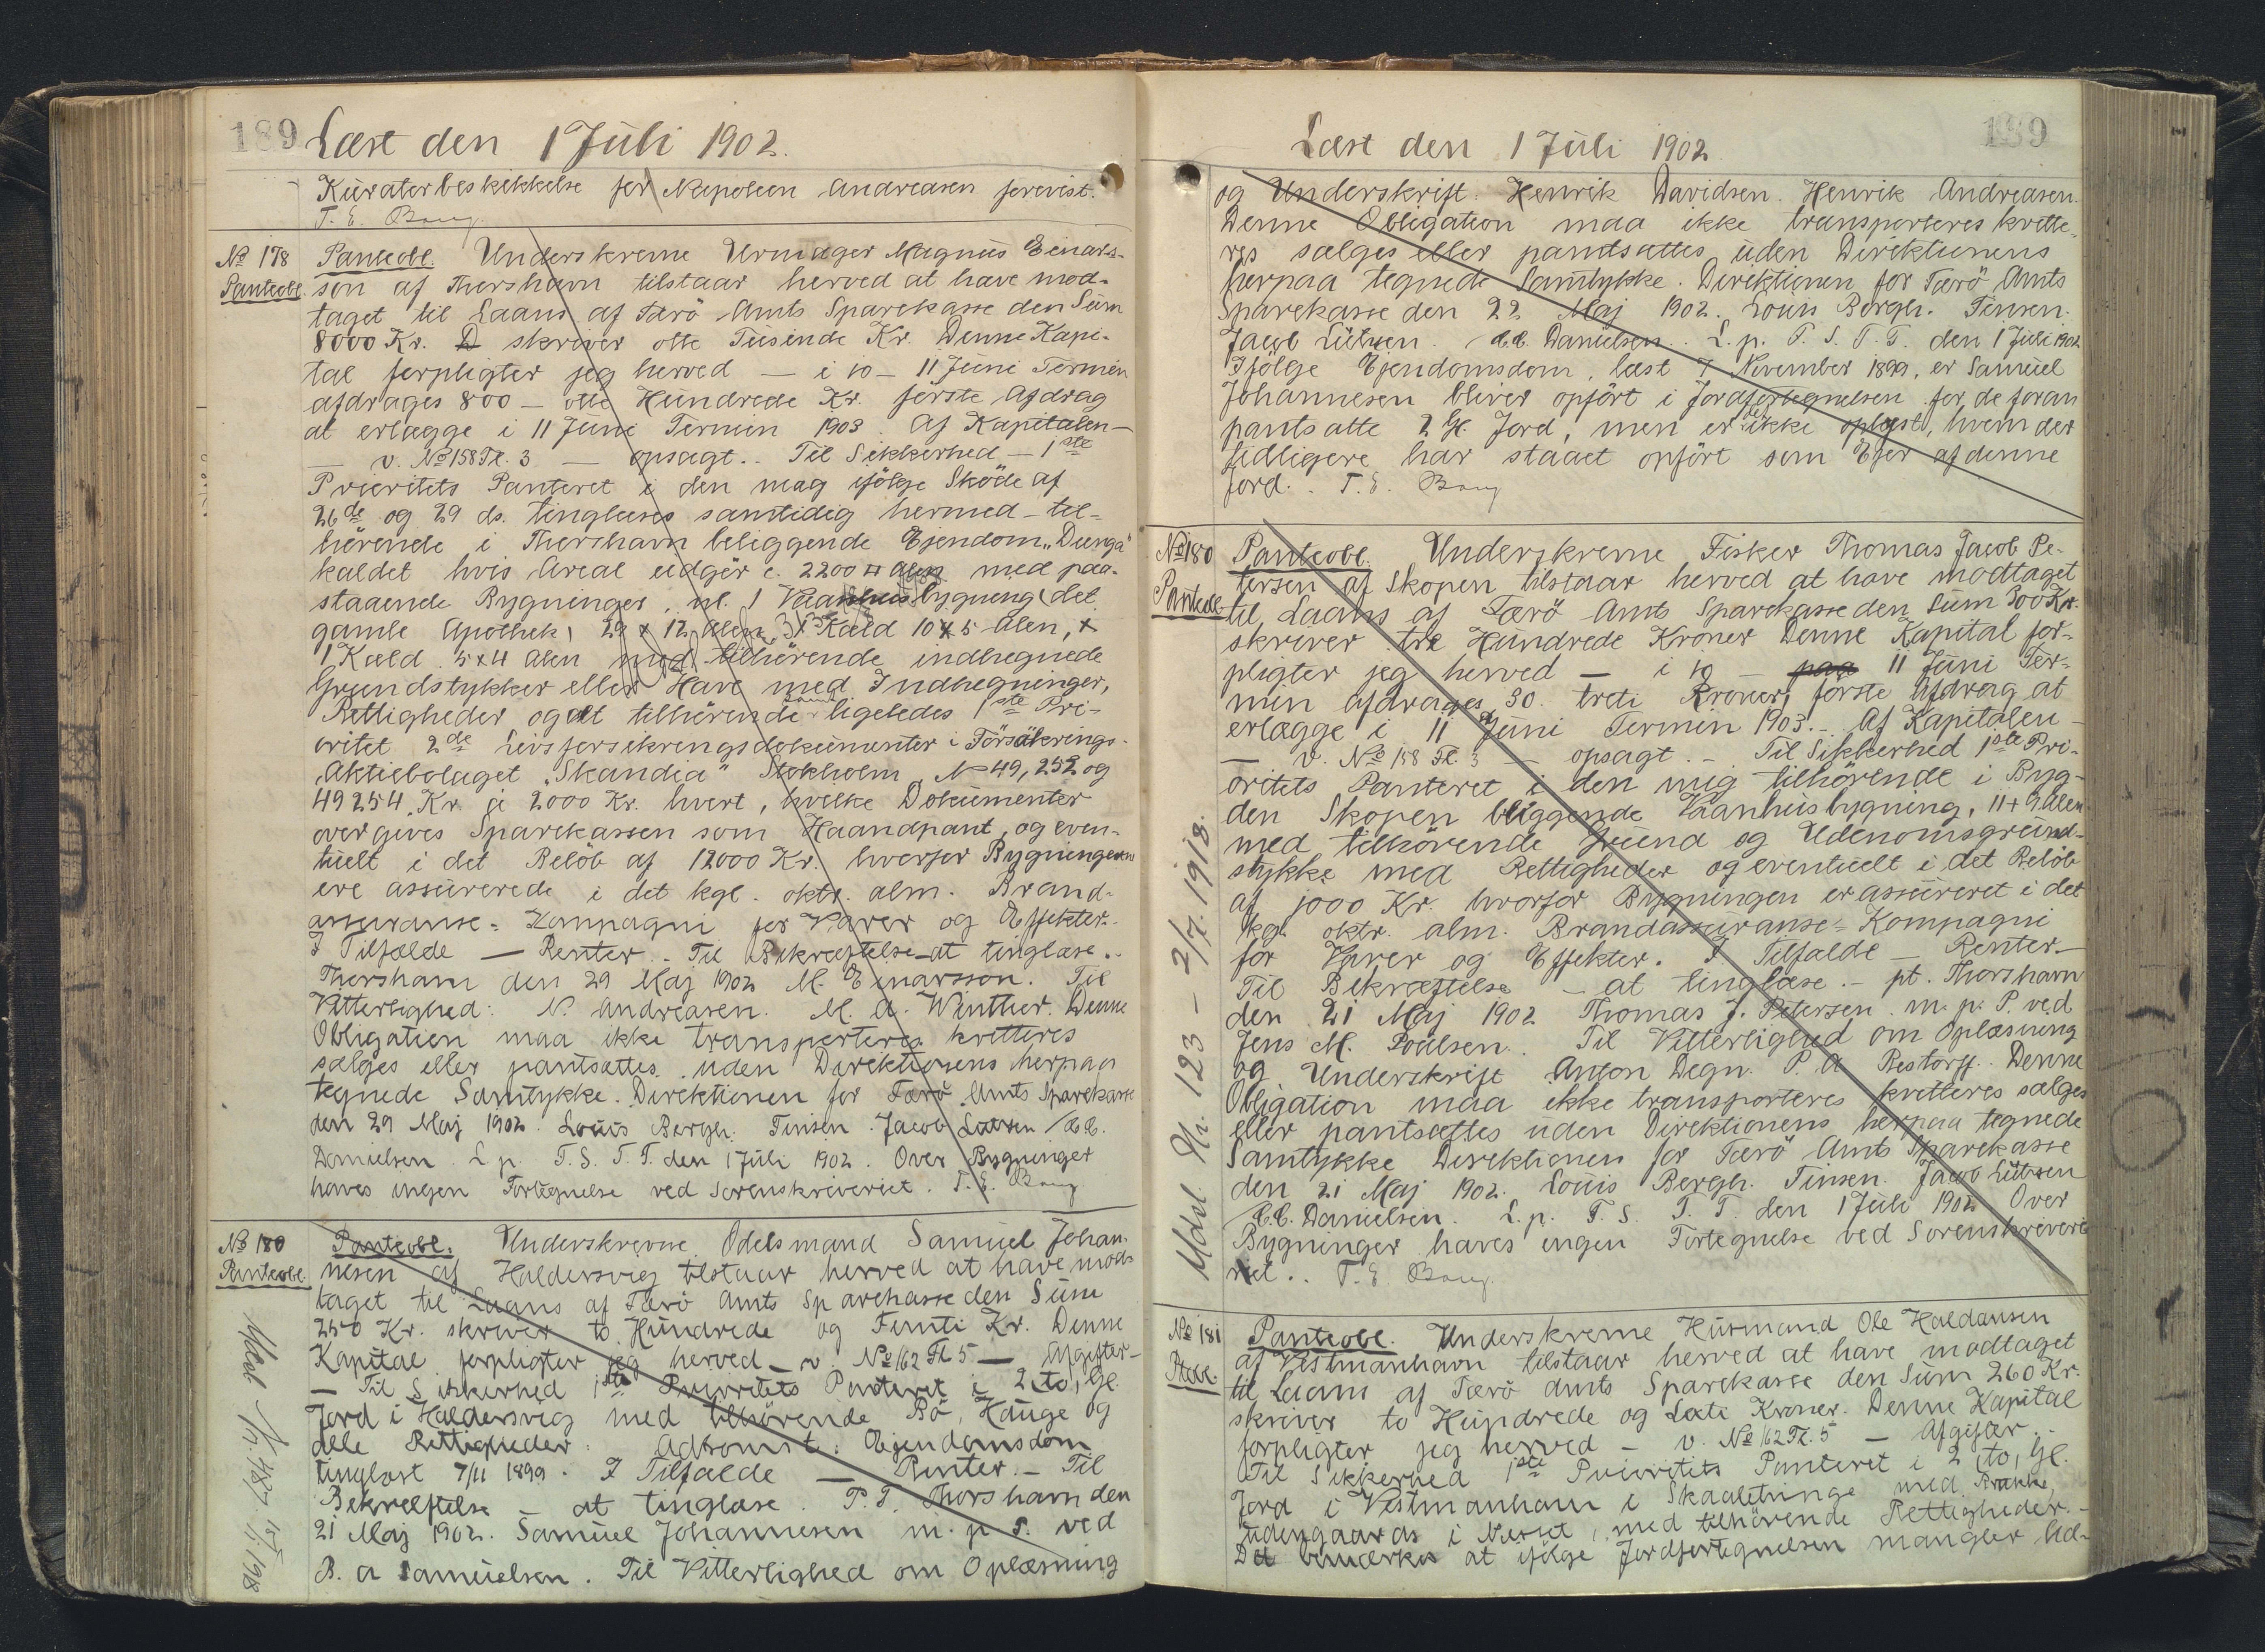 189 Læst den 1 Juli 1902.
Kuratorbeskikkelse for Napoleon Andreasen forevist.
T. E. Bang
No 178
Panteobl.
Panteobl. Underskrevne Urmager Magnus Einars-
son af Thorshavn tilstaar herved at have mod-
taget til Laans af Færö Amts Sparekasse den Sum
8000 Kr. D skriver otte Tusinde Kr. Denne Kapi-
tal forpligter jeg herved — i 10 — 11 Juni Termin
afdrages 800 — otte Hundrede Kr. förste Afdrag
at erlægge i 11 Juni Termin 1903. Af Kapitalen —
— v. No 158 Fl. 3 — opsagt. . Til Sikkerhed — 1ste
Prioritets Panteret i den mag ifölge Sköde af
26de og 29 ds. tinglæses samtidig hermed — til-
hörende i Thorshavn beliggende Ejendom „Dunga"
kaldet hvis Areal udgör c. 2200 □ Alen med paa-
staaende Bygninger, nl. 1 Vaanhusbygning (det
gamle Apothek) 29 x 12 Alen, 1 Kæld 10 x 5 Alen, &
1 Kæld 5 x 4 Alen med tilhörende indhegnede
Grundstykker eller Have med Indhegninger,
Rettigheder og alt tilhörende ligeledes 1ste Pri-
oritet 2de Livsforsikringsdokumenter i Försäkrings-
Aktiebolaget „Skandia" Stokholm No 49,252 og
49254 Kr. je 2000 Kr. hvert, hvilke Dokumenter
overgives Sparekassen som Haandpant, og even-
tuelt i det Belöb af 12000 Kr. hvorfor Bygningerne
ere assurerede i det kgl. oktr. alm. Brand-
assuranse-Kompagni for Varer og Effekter.
I Tilfælde — Renter. . Til Bekræftelse — at tinglæse. .
Thorshavn den 29 Maj 1902 M. Einarsson. Til
Vitterlighed: N. Andreasen. M. A. Winther. Denne
Obligation maa ikke transporteres kvitteres
sælges eller pantsættes uden Direktionens herpaa
tegnede Samtykke. Direktionen for Færö Amts Sparekasse
den 29 Maj 1902. Louis Bergh. Finsen. Jacob Lützen C.C.
Danielsen. L. p. F. S. T. T. den 1 Juli 1902. Over Bygninger
haves ingen Fortegnelse ved Sorenskriveriet. T. E. Bang
No 180
Panteobl.
Panteobl. Underskrevne Odelsmand Samuel Johan-
nesen af Haldersvig tilstaar herved at have mod-
taget til Laans af Færö Amts Sparekasse den Sum
250 Kr. skriver to Hundrede og Femti Kr. Denne
Kapital forpligter jeg herved — v. No 162 Fl 5 — Afgifter —
— Til Sikkerhed 1ste Prioritets Panteret i 2, to, Gl.
Jord i Haldersvig med tilhörende Bö, Hauge og
alle Rettigheder. Adkomst: Ejendomsdom
tinglæst 7/11 1899. I Tilfælde — Renter. — Til
Bekræftelse — at tinglæse. P.T. Thorshavn den
21 Maj 1902. Samuel Johannesen m. p. P. ved
B. A Samuelsen. Til Vitterlighed om Oplæsning
Læst den 1 Juli 1902 189
og Underskrift. Henrik Davidsen. Henrik Andreasen.
Denne Obligation maa ikke transporteres kvitte-
res sælges eller pantsættes uden Direktionens
herpaa tegnede Samtykke. Direktionen for Færö Amts
Sparekasse den 22 Maj 1902. Louis Bergh. Finsen.
Jacob Lützen. C.C. Danielsen. . L. p. F. S. T. T. den 1 Juli 1902
Ifölge Ejendomsdom, læst 7 November 1899, er Samuel
Johannesen bliver opfört i Jordfortegnelsen for de foran
pantsatte 2 Gl. Jord, men er ikke oplyst, hvem der
tidligere har staaet opfört som Ejer af denne
Jord. . T. E. Bang
No 180
Panteobl.
Panteobl. Underskrevne Fisker Thomas Jacob Pe-
tersen af Skopen tilstaar herved at have modtaget
til Laans af Færö Amts Sparekasse den Sum 300 Kr.
skriver tre Hundrede Kroner Denne Kapital for-
pligter jeg herved — i 10 — paa 11 Juni Ter-
min afdrages 30. treti Kroner, förste Afdrag at
erlægge i 11 Juni Termin 1903. — Af Kapitalen —
— v. No 158 Fl. 3 — opsagt. — Til Sikkerhed 1ste Pri-
oritets Panteret i den mig tilhörende i Byg-
den Skopen bliggende Vaanhusbygning, 11 x 9 Alen
med tilhörende Grund og Udenomsgrund-
stykke med Rettigheder og eventuelt i det Belöb
af 1000 Kr. hvorfor Bygningen er assureret i det
kg. oktr. alm. Brandassuranse-Kompagni
for Varer og Effekter. I Tilfælde — Renter —
Til Bekræftelse — at tinglæse. — pt. Thorshavn
den 21 Maj 1902 Thomas J. Petersen m. p. P. ved
Jens M. Poulsen. Til Vitterlighed om Oplæsning
og Underskrift Anton Degn. P. A Restorff. Denne
Obligation maa ikke transporteres kvitteres sælges
eller pantsættes uden Direktionens herpaa tegnede
Samtykke Direktionen for Færö Amts Sparekasse
den 21 Maj 1902. Louis Bergh. Finsen. Jacob Lützen
C.C. Danielsen. L. p. F. S. T. T. den 1 Juli 1902 Over
Bygninger haves ingen Fortegnelse ved Sorenskriveri
riet. . T. E. Bang.
Udsl. Nr. 123 - 2/7. 1918.
No 181
Panteobl. Underskrevne Husmand Ole Haldansen
af Vestmanhavn tilstaar herved at have modtaget
til Laans af Færö Amts Sparekasse den Sum 260 Kr.
skriver to Hundrede og Seksti Kroner. Denne Kapital
forpligter jeg herved — v. No 162 Fl. 5 — Afgifter. .
Til Sikkerhed 1ste Prioritets Panteret i 2, to, Gl.
Jord i Vestmanhavn i Skaaletringe med
udengaards i Nesset, med tilhörende Rettigheder. —
Det bemærkes at ifölge Jordfortegnelsen mangler Ud-